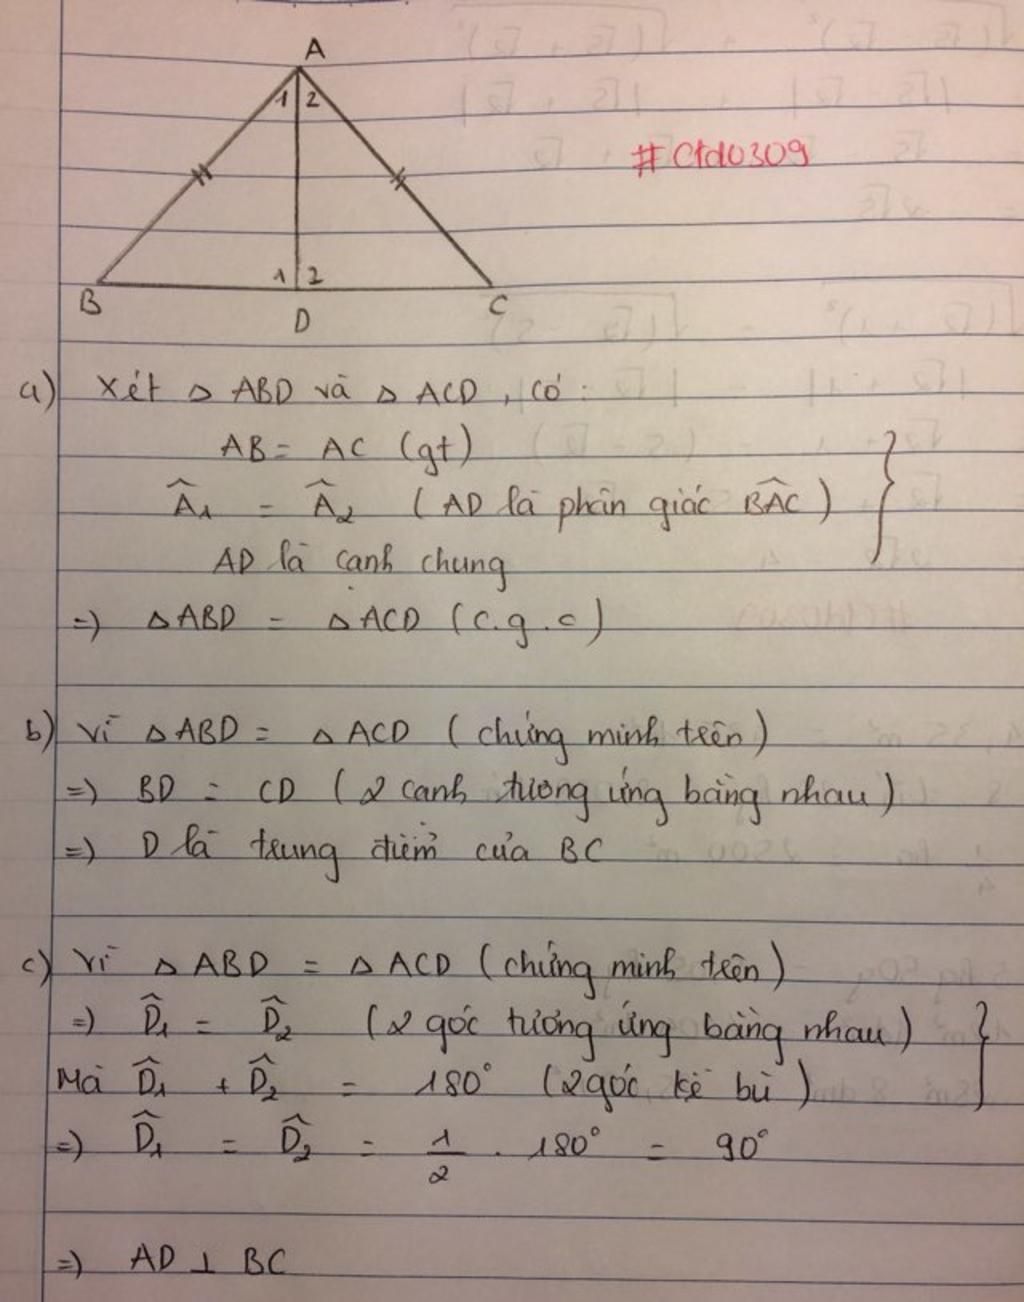 A
1 2
#Ctd0309
1 2
B
C
D
a) Xét △ ABD và △ ACD, có:
AB = AC (gt)
Â₁ = Â₂ (AD là phân giác BÂC)
AD là cạnh chung
=) △ABD = △ACD (c.g.c)
b) Vì △ABD = △ACD (chứng minh trên)
=) BD = CD (2 cạnh tương ứng bằng nhau)
=) D là trung điểm của BC
c) Vì △ABD = △ACD (chứng minh trên)
=) D̂₁ = D̂₂ (2 góc tương ứng bằng nhau)
Mà D̂₁ + D̂₂ = 180° (2 góc kề bù)
=) D̂₁ = D̂₂ = 1/2 . 180° = 90°
=) AD ⊥ BC